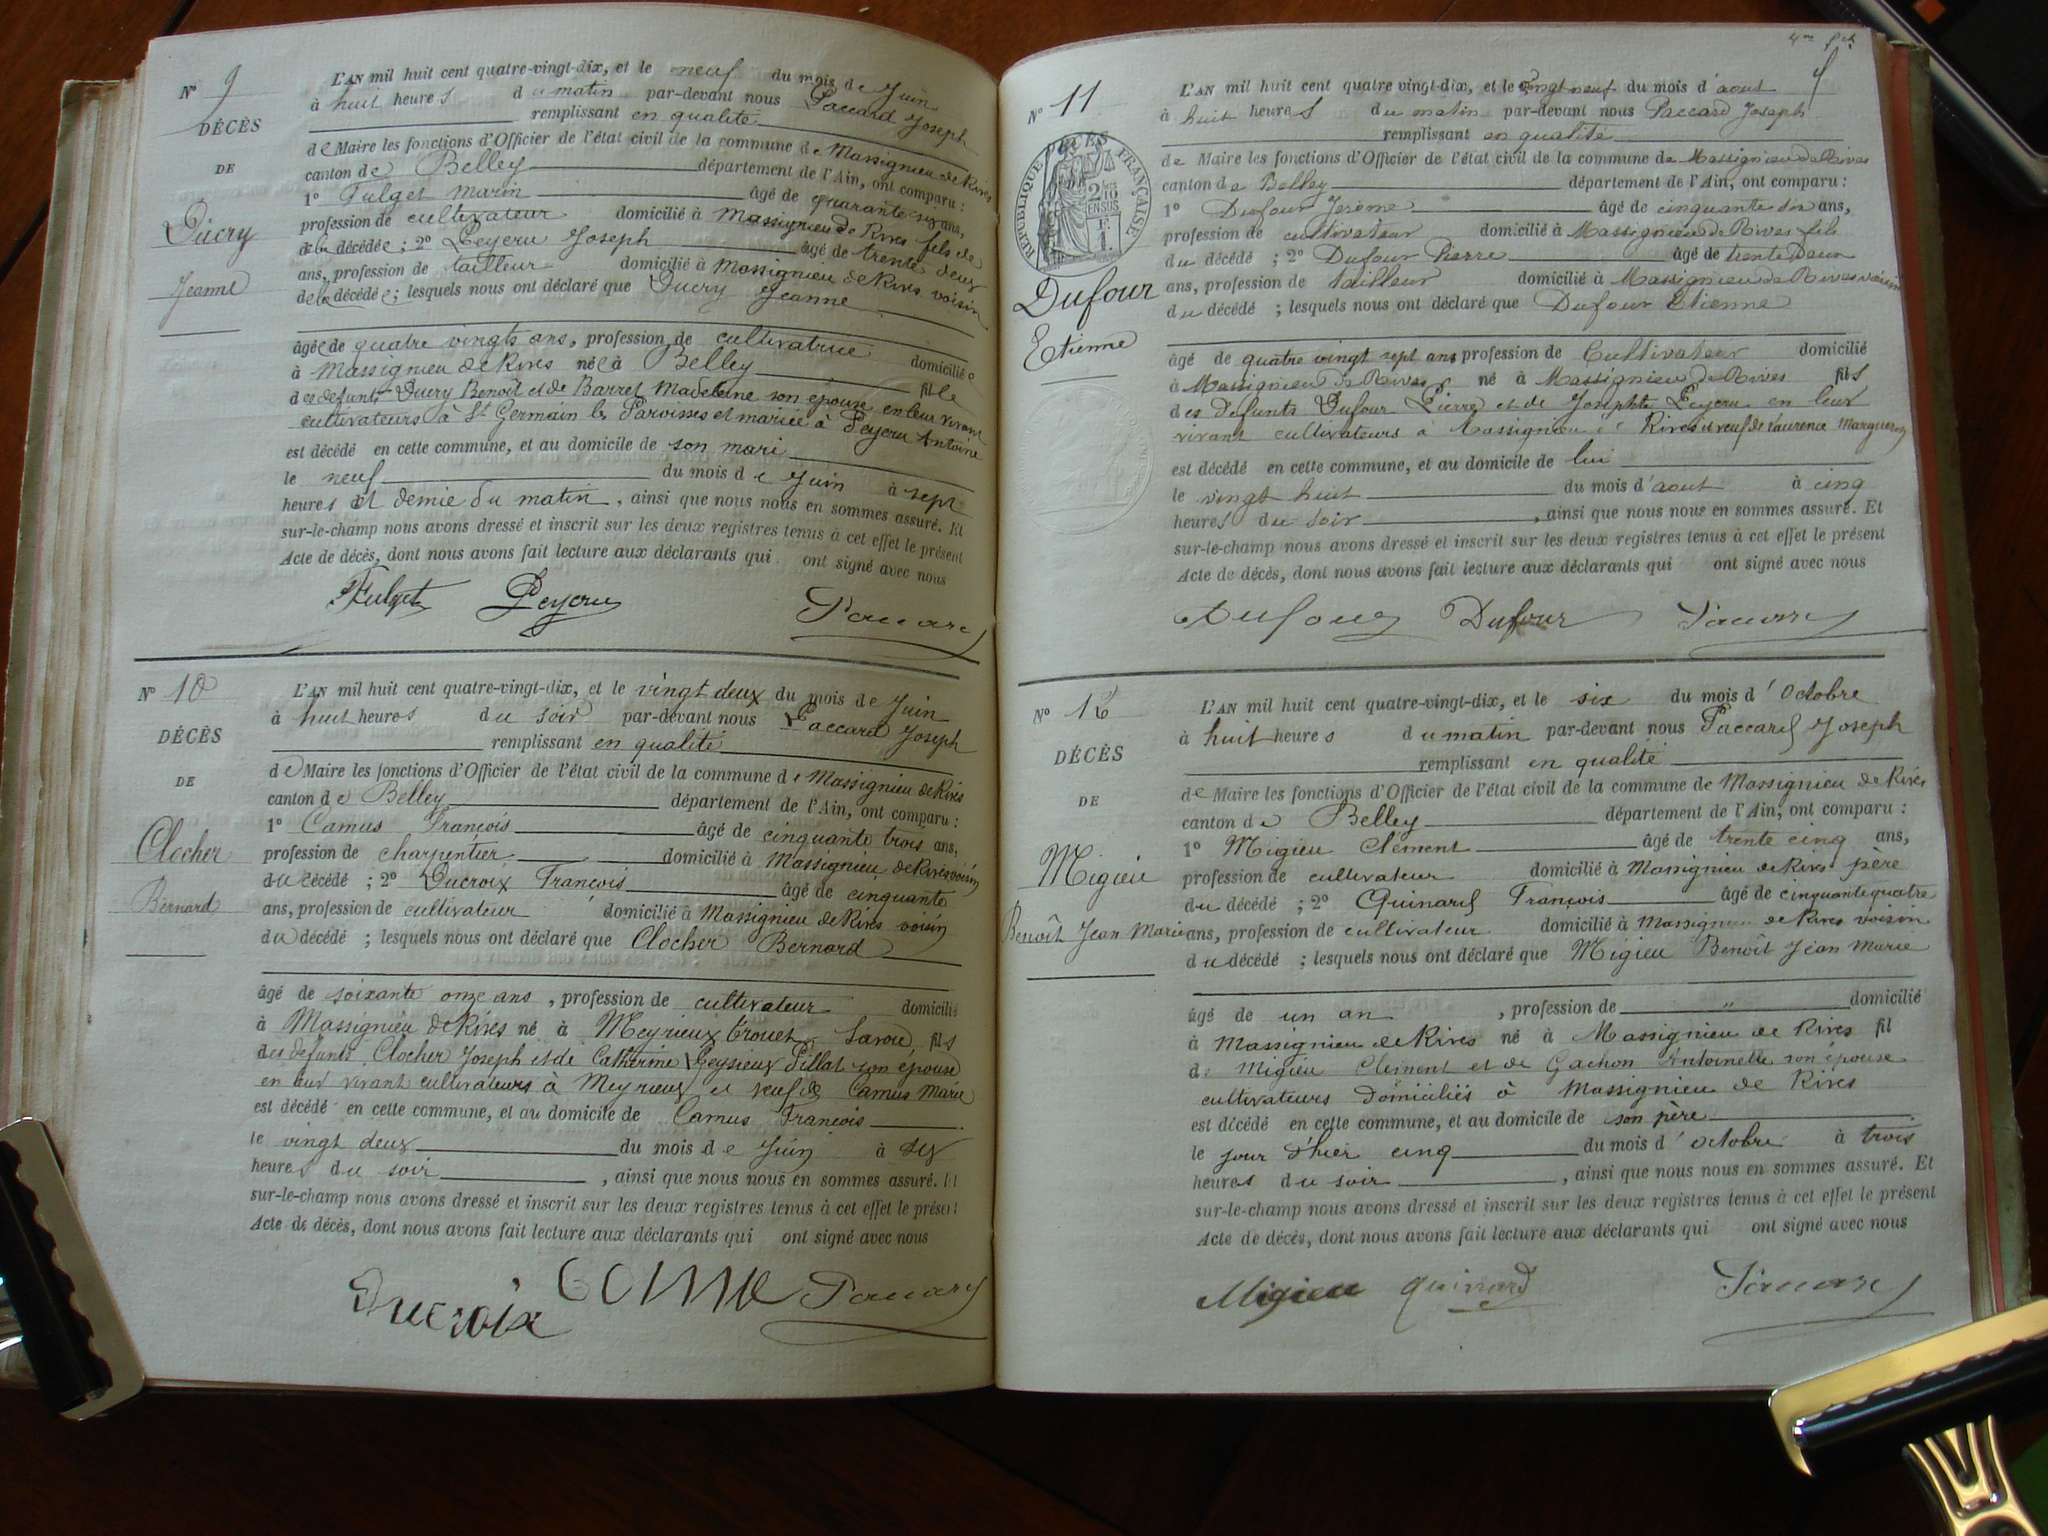 N° 9
DÉCÈS
DE
Ducry
Jeanne
L'AN mil huit cent quatre-vingt-dix, et le neuf du mois de Juin
à huit heures du matin par-devant nous Paccard Joseph
remplissant en qualité
de Maire les fonctions d'Officier de l'état civil de la commune de Massignieu de Rives
canton de Belley département de l'Ain, ont comparu :
1° Fulget Marin âgé de quarante six ans,
profession de cultivateur domicilié à Massignieu de Rives fils de
de la décédée ; 2° Peyeru Joseph âgé de trente deux
ans, profession de tailleur domicilié à Massignieu de Rives voisin
de la décédée ; lesquels nous ont déclaré que Ducry Jeanne
âgée de quatre vingts ans, profession de cultivatrice domicilié
à Massignieu de Rives née à Belley fille
des defunts Ducry Benoît et de Barret Madeleine son épouse en leur vivant
cultivateurs à St Germain les Paroisses et mariée à Peyeru Antoine
est décédé en cette commune, et au domicile de son mari
le neuf du mois de Juin à sept
heures et demie du matin, ainsi que nous nous en sommes assuré. Et
sur-le-champ nous avons dressé et inscrit sur les deux registres tenus à cet effet le présent
Acte de décès, dont nous avons fait lecture aux déclarants qui ont signé avec nous
Fulget Peyeru Paccard
N° 10
DÉCÈS
DE
Clocher
Bernard
L'AN mil huit cent quatre-vingt-dix, et le vingt deux du mois de Juin
à huit heures du soir par-devant nous Paccard Joseph
remplissant en qualité
de Maire les fonctions d'Officier de l'état civil de la commune de Massignieu de Rives
canton de Belley département de l'Ain, ont comparu :
1° Camus François âgé de cinquante trois ans,
profession de charpentier domicilié à Massignieu de Rives voisin
du décédé ; 2° Ducroix François âgé de cinquante
ans, profession de cultivateur domicilié à Massignieu de Rives voisin
du décédé ; lesquels nous ont déclaré que Clocher Bernard
âgé de soixante onze ans, profession de cultivateur domicilié
à Massignieu de Rives né à Meyrieux Trouet Savoie, fils
des defunts Clocher Joseph et de Catherine Peysieux Pillat son épouse
en leur vivant cultivateurs à Meyrieux et veuf de Camus Marie
est décédé en cette commune, et au domicile de Camus François
le vingt deux du mois de Juin à six
heures du soir, ainsi que nous nous en sommes assuré. Et
sur-le-champ nous avons dressé et inscrit sur les deux registres tenus à cet effet le présent
Acte de décès, dont nous avons fait lecture aux déclarants qui ont signé avec nous
Ducroix Paccard
N° 11
RÉPUBLIQUE FRANÇAISE
Dufour
Etienne
L'AN mil huit cent quatre-vingt-dix, et le vingt neuf du mois d'aout
à huit heures du matin par-devant nous Paccard Joseph
remplissant en qualité
de Maire les fonctions d'Officier de l'état civil de la commune de Massignieu de Rives
canton de Belley département de l'Ain, ont comparu :
1° Dufour Jérème âgé de cinquante six ans,
profession de cultivateur domicilié à Massignieu de Rives fils
du décédé ; 2° Dufour Pierre âgé de trente deux
ans, profession de tailleur domicilié à Massignieu de Rives voisin
du décédé ; lesquels nous ont déclaré que Dufour Etienne
âgé de quatre vingt sept ans profession de Cultivateur domicilié
à Massignieu de Rives né à Massignieu de Rives fils
des defunts Dufour Pierre et de Josephte Peyeru en leur
vivant cultivateurs à Massignieu de Rives et veuf de Laurence Marguerite
est décédé en cette commune, et au domicile de lui
le vingt huit du mois d'aout à cinq
heures du soir, ainsi que nous nous en sommes assuré. Et
sur-le-champ nous avons dressé et inscrit sur les deux registres tenus à cet effet le présent
Acte de décès, dont nous avons fait lecture aux déclarants qui ont signé avec nous
Dufour Dufour Paccard
N° 12
DÉCÈS
DE
Migieu
Benoît Jean Marie
L'AN mil huit cent quatre-vingt-dix, et le six du mois d'Octobre
à huit heures du matin par-devant nous Paccard Joseph
remplissant en qualité
de Maire les fonctions d'Officier de l'état civil de la commune de Massignieu de Rives
canton de Belley département de l'Ain, ont comparu :
1° Migieu Clément âgé de trente cinq ans,
profession de cultivateur domicilié à Massignieu de Rives père
du décédé ; 2° Quinard François âgé de cinquante quatre
ans, profession de cultivateur domicilié à Massignieu de Rives voisin
du décédé ; lesquels nous ont déclaré que Migieu Benoît Jean Marie
âgé de un an, profession de " domicilié
à Massignieu de Rives né à Massignieu de Rives fil
de Migieu Clément et de Gachon Antoinette son épouse
cultivateurs domiciliés à Massignieu de Rives
est décédé en cette commune, et au domicile de son père
le jour d'hier cinq du mois d'octobre à trois
heures du soir, ainsi que nous nous en sommes assuré. Et
sur-le-champ nous avons dressé et inscrit sur les deux registres tenus à cet effet le présent
Acte de décès, dont nous avons fait lecture aux déclarants qui ont signé avec nous
Migieu Quinard Paccard